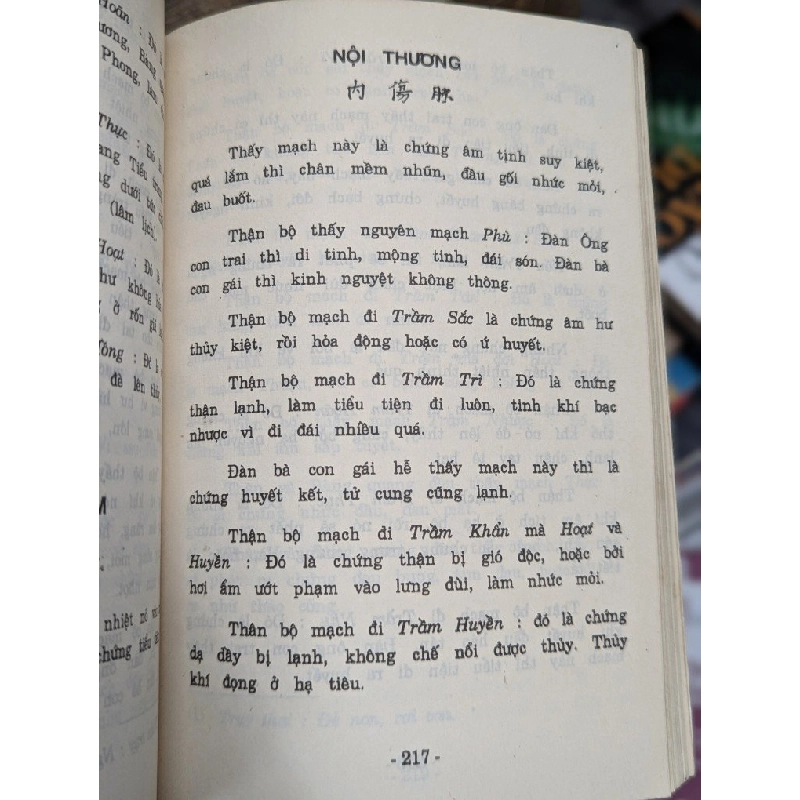 Hoãn : Đó
Phong, làm
Thực : Đó là
(lâm lịch).
Hoạt : Đó
như không
ở rốn
đề lên
nhiệt nó
chứng tiểu
NỘI THƯƠNG
內 傷 脉
Thấy mạch này là chứng âm tịnh suy kiệt,
quá lắm thì chân mềm nhũn, đầu gối nhức mỏi,
đau buốt.
Thận bộ thấy nguyên mạch Phù : Đàn Ông
con trai thì di tinh, mộng tinh, đái són. Đàn bà
con gái thì kinh nguyệt không thông.
Thận bộ mạch đi Trầm Sắc là chứng âm hư
thủy kiệt, rồi hỏa động hoặc có ứ huyết.
Thận bộ mạch đi Trầm Trì : Đó là chứng
thận lạnh, làm tiểu tiện đi luôn, tinh khí bạc
nhược vì đi đái nhiều quá.
Đàn bà con gái hễ thấy mạch này thì là
chứng huyết kết, tử cung cũng lạnh.
Thận bộ mạch đi Trầm Khẩn mà Hoạt và
Huyền : Đó là chứng thận bị gió độc, hoặc bởi
hơi ẩm ướt phạm vào lưng đùi, làm nhức mỏi.
Thân bộ mạch đi Trầm Huyền : đó là chứng
dạ dầy bị lạnh, không chế nổi được thủy. Thủy
khí đọng ở hạ tiêu.
- 217 -